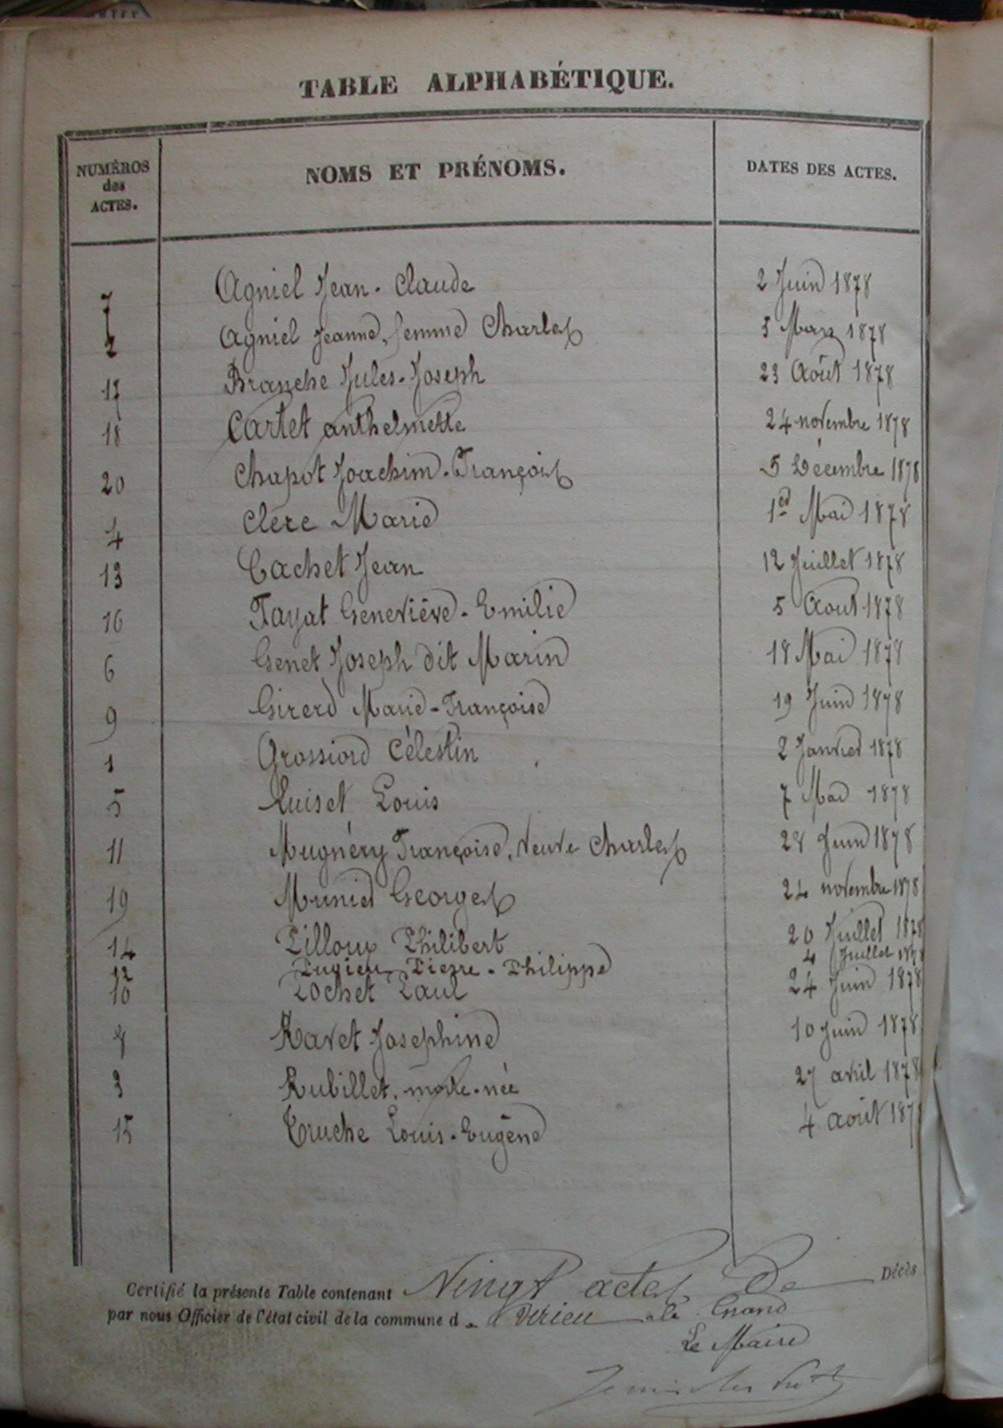 TABLE ALPHABÉTIQUE.
NUMÉROS des ACTES. NOMS ET PRÉNOMS. DATES DES ACTES.
7 Agniel Jean-Claude 2 Juin 1878
2 Agniel Jeanne, femme Charles 5 Mars 1878
17 Branche Jules-Joseph 23 Août 1878
18 Cartet Anthelmette 24 novembre 1878
20 Chapot Joachim-François 5 Décembre 1878
4 Clerc Marie 1er Mai 1878
13 Cachet Jean 12 Juillet 1878
16 Fayat Geneviève-Emilie 5 Août 1878
6 Genet Joseph dit Marin 18 Mai 1878
9 Girerd Marie-Françoise 19 Juin 1878
1 Grossiord Célestin 2 Janvier 1878
5 Luiset Louis 7 Mai 1878
11 Mugnéry Françoise, veuve Charles 28 Juin 1878
19 Munier Georges 24 novembre 1878
14 Pilloux Philibert 20 Juillet 1878
12 Pugieu Pierre-Philippe 4 Juillet 1878
10 Pochet Paul 24 Juin 1878
8 Ravet Josephine 10 Juin 1878
3 Rubillet, mort-née 27 avril 1878
15 Truche Louis-Eugène 4 août 1878
Certifié la présente Table contenant Vingt actes de Décès
par nous Officier de l'état civil de la commune d e Virieu le Grand
Le Maire